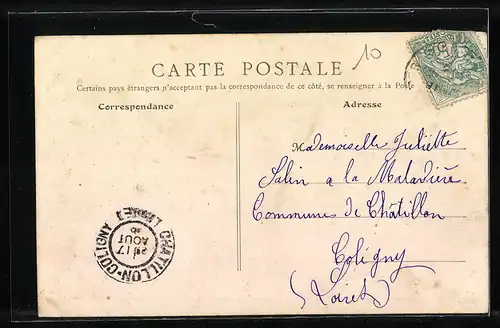 10
CARTE POSTALE
Certains pays étrangers n'acceptant pas la correspondance de ce côté, se renseigner à la Poste
Correspondance
Adresse
Mademoiselle Juliette
Salin a la Maladière
Communes de Châtillon
Coligny
(Loiret)
CHATILLON-COLIGNY (LOIRET)
17
AOUT